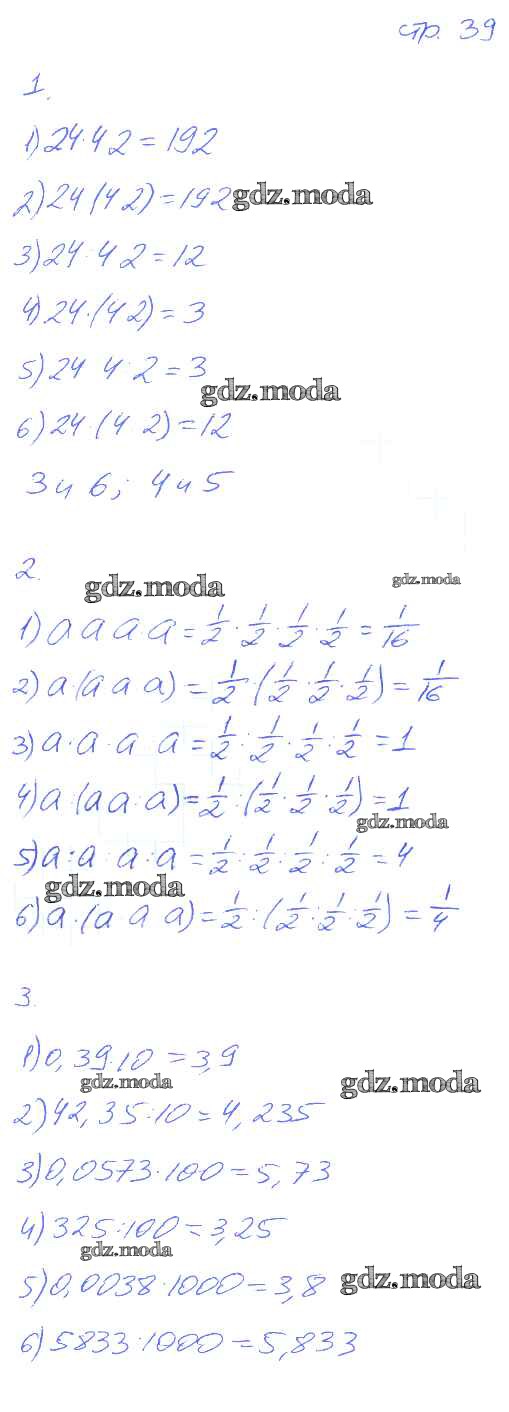 стр. 39
1.
1) 24·4·2=192
2) 24(4·2)=192 gdz.moda
3) 24·4·2=12
4) 24·(4·2)=3
5) 24 4·2=3
gdz.moda
6) 24·(4·2)=12
3 и 6; 4 и 5
2.
gdz.moda gdz.moda
1) a a a·a=1/2·1/2·1/2·1/2=1/16
2) a(a a a)=1/2·(1/2·1/2·1/2)=1/16
3) a·a·a a=1/2:1/2·1/2:1/2=1
4) a·(a a·a)=1/2:(1/2·1/2:1/2)=1
gdz.moda
5) a:a a:a=1/2:1/2:1/2:1/2=4
gdz.moda
6) a·(a a a)=1/2:(1/2:1/2:1/2)=1/4
3.
1) 0,39·10=3,9
gdz.moda gdz.moda
2) 42,35:10=4,235
3) 0,0573·100=5,73
4) 325:100=3,25
gdz.moda
5) 0,0038·1000=3,8 gdz.moda
6) 5833:1000=5,833